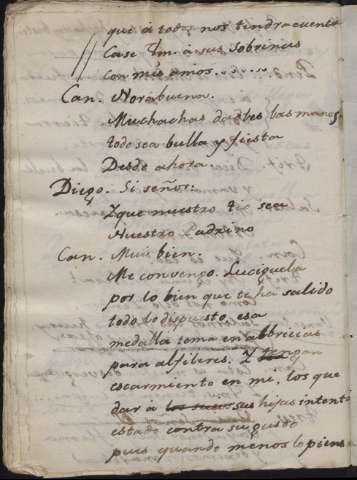 que à todos nos tendra cuenta
Case Vm. à sus sobrinas
con mis amos......
Can. Norabuena.
Muchachas dadles las manos,
todo sea bulla y fiesta
Desde ahora
Diego. Si señor:
Y que nuestro tio sea
Nuestro Padrino
Can. Mui bien:
Me convengo. Luciguela
por lo bien que te ha salido
todo lo dispuesto, esa
medalla toma en albricias
para alfileres. Y tengan
escarmiento en mi, los que
dar à sus hijas intenten
estado contra su gusto
pues quando menos lo piens